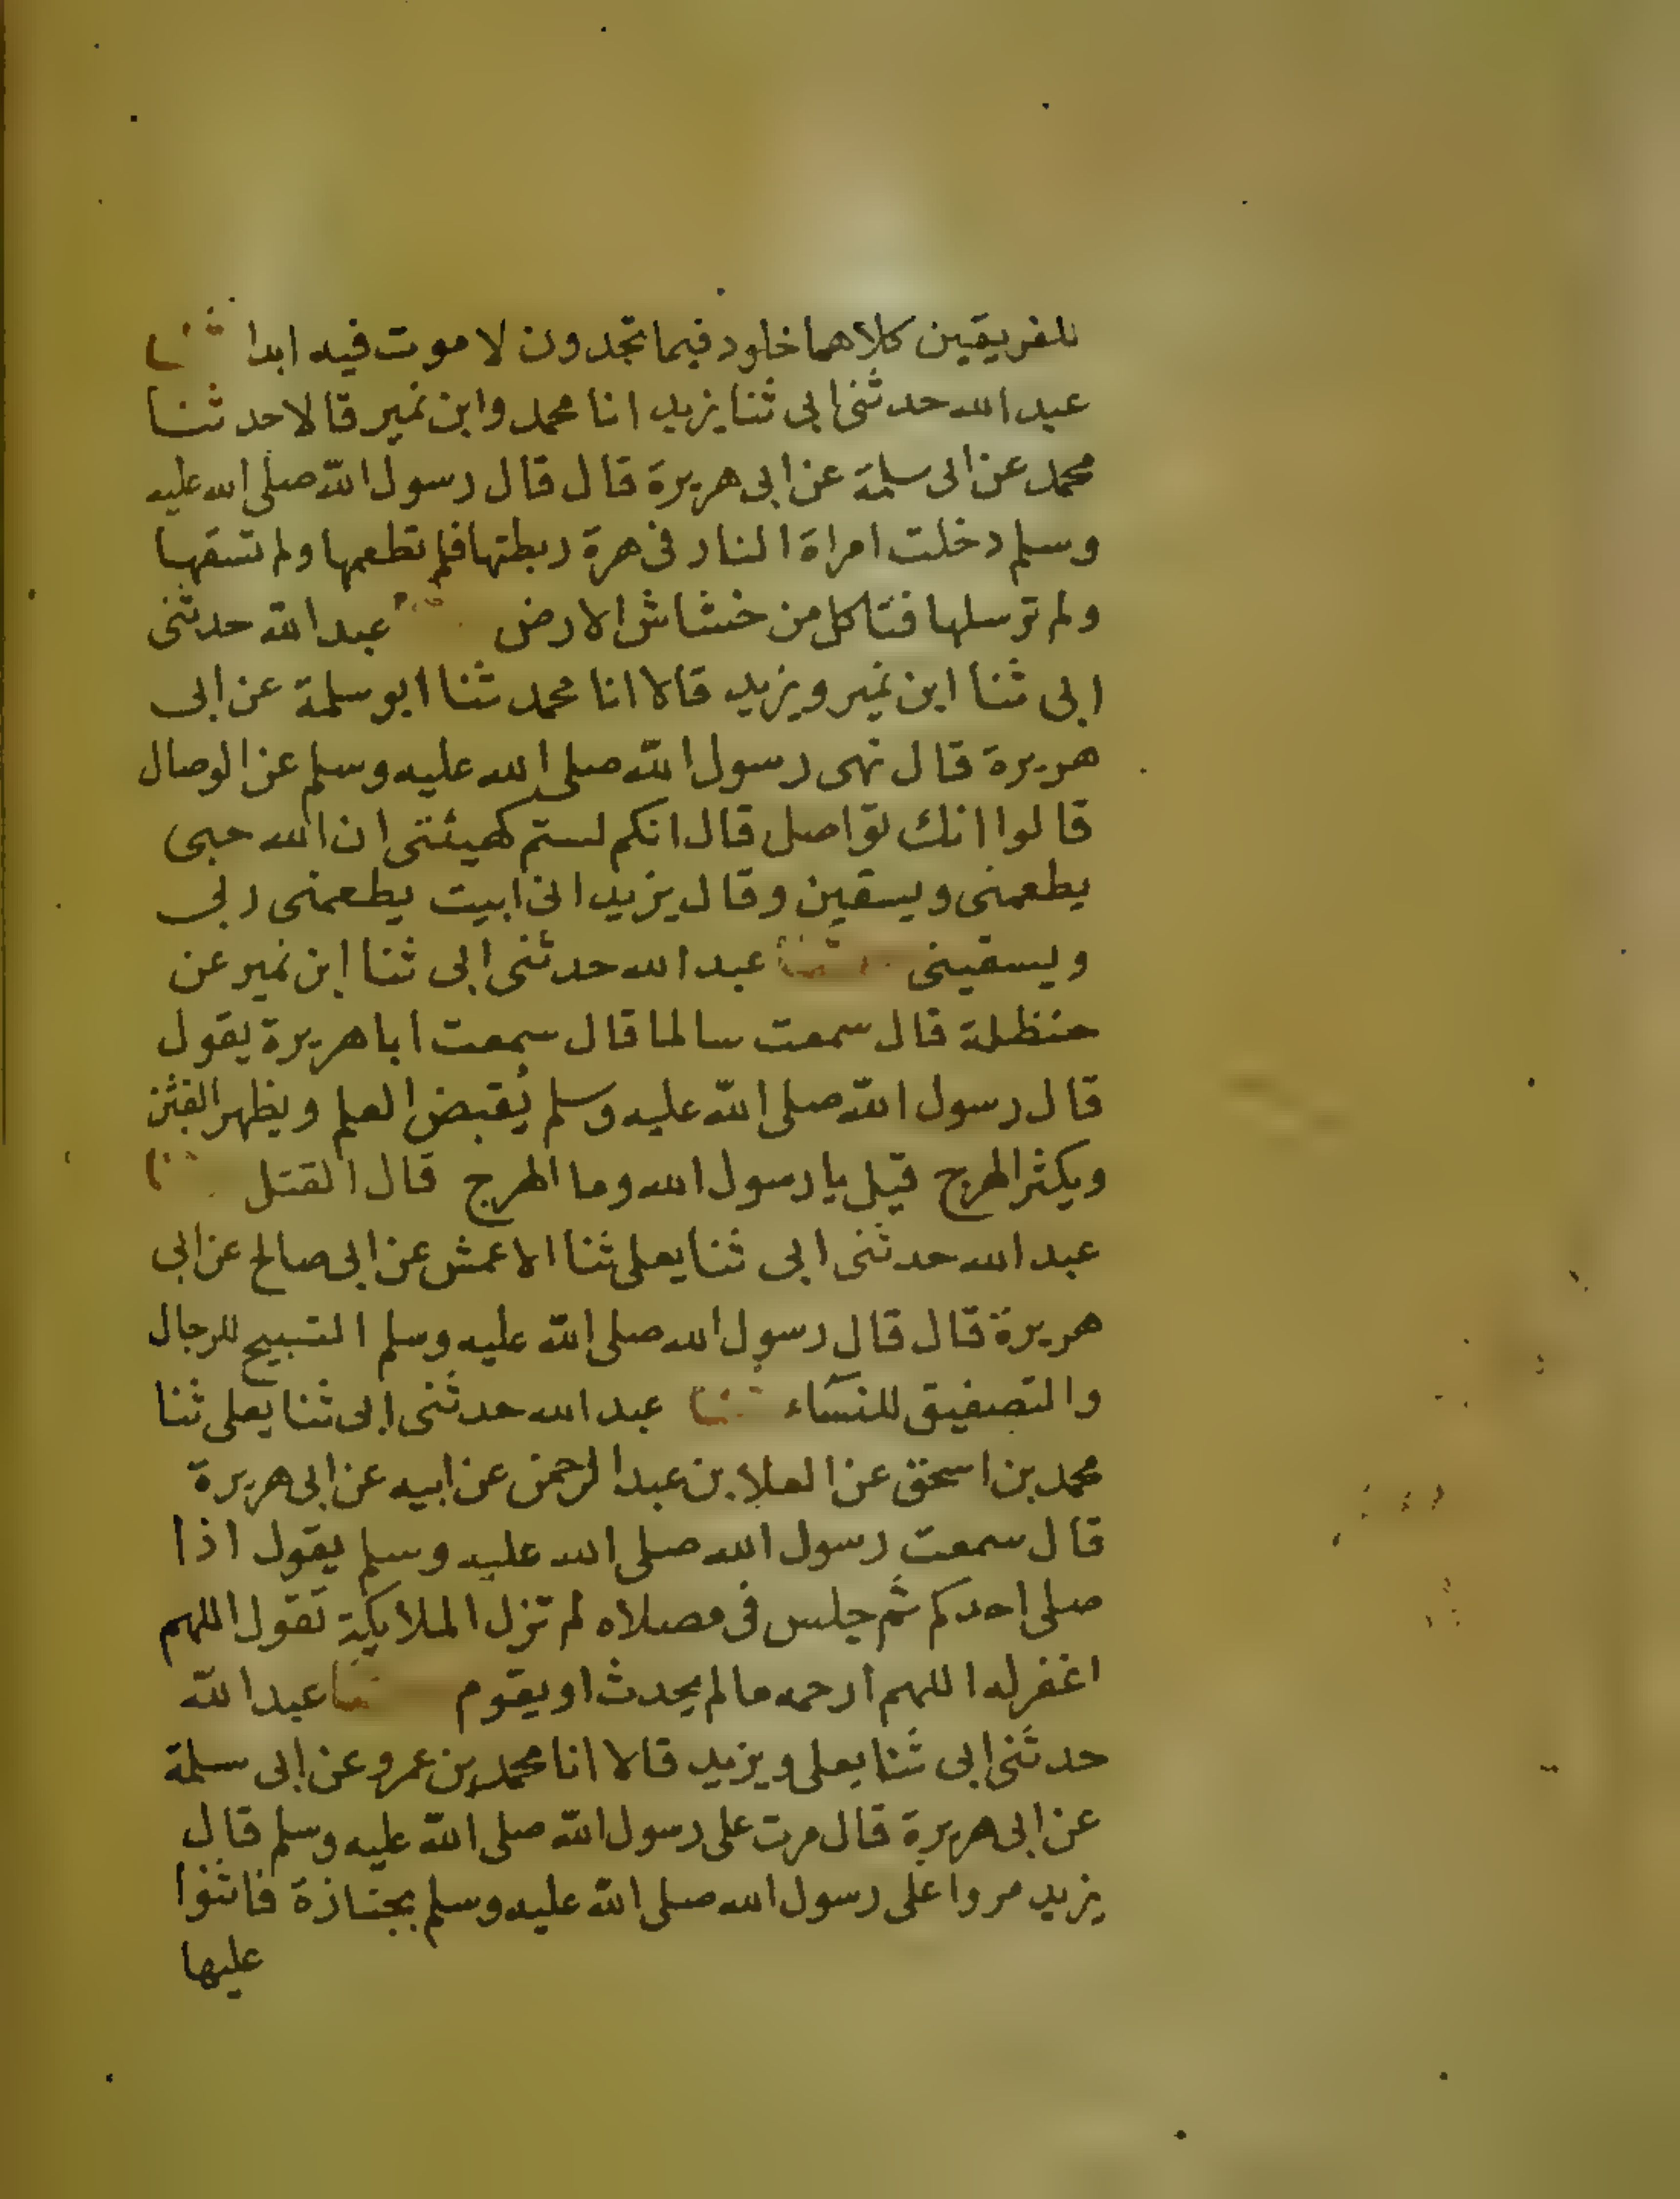 للفريقين كلاهما خلود فيما تجدون لا موت فيه ابدا ثنا
عبد الله حدثنى ابى ثنا يزيد انا محمد وابن نمير قالا حدثنا
محمد عن ابى سلمة عن ابى هريرة قال قال رسول الله صلى الله عليه
وسلم دخلت امراة النار فى هرة ربطتها فلم تطعمها ولم تسقها
ولم ترسلها فتاكل من خشاش الارض ثنا عبد الله حدثنى
ابى ثنا ابن نمير ويزيد قالا انا محمد ثنا ابو سلمة عن ابى
هريرة قال نهى رسول الله صلى الله عليه وسلم عن الوصال
قالوا انك تواصل قال انكم لستم كهيئتى ان الله حبى
يطعمنى ويسقين وقال يزيد انى ابيت يطعمنى ربى
ويسقينى ثنا عبد الله حدثنى ابى ثنا ابن نمير عن
حنظلة قال سمعت سالما قال سمعت ابا هريرة يقول
قال رسول الله صلى الله عليه وسلم يُقبض العلم ويظهر الفتن
ويكثر الهرج قيل يا رسول الله وما الهرج قال القتل ثنا
عبد الله حدثنى ابى ثنا يعلى ثنا الاعمش عن ابى صالح عن ابى
هريرة قال قال رسول الله صلى الله عليه وسلم التسبيح للرجال
والتصفيق للنسآء ثنا عبد الله حدثنى ابى ثنا يعلى ثنا
محمد بن اسحق عن العلا بن عبد الرحمن عن ابيه عن ابى هريرة
قال سمعت رسول الله صلى الله عليه وسلم يقول اذا
صلى احدكم ثم جلس فى مصلاه لم تزل الملايكة تقول اللهم
اغفر له اللهم ارحمه ما لم يحدث او يقوم ثنا عبد الله
حدثنى ابى ثنا يعلى ويزيد قالا انا محمد بن عمرو عن ابى سلمة
عن ابى هريرة قال مرت على رسول الله صلى الله عليه وسلم قال
يزيد مروا على رسول الله صلى الله عليه وسلم بجنازة فاثنوا
عليها